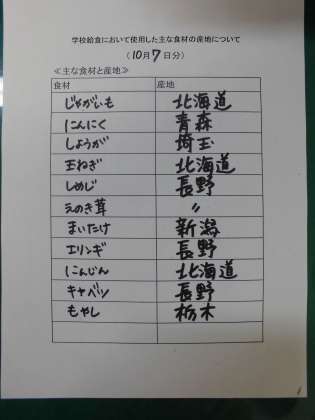 学校給食において使用した主な食材の産地について
(10月7日分)
≪主な食材と産地≫
食材 産地
じゃがいも 北海道
にんにく 青森
しょうが 埼玉
玉ねぎ 北海道
しめじ 長野
えのき茸 〃
まいたけ 新潟
エリンギ 長野
にんじん 北海道
キャベツ 長野
もやし 栃木